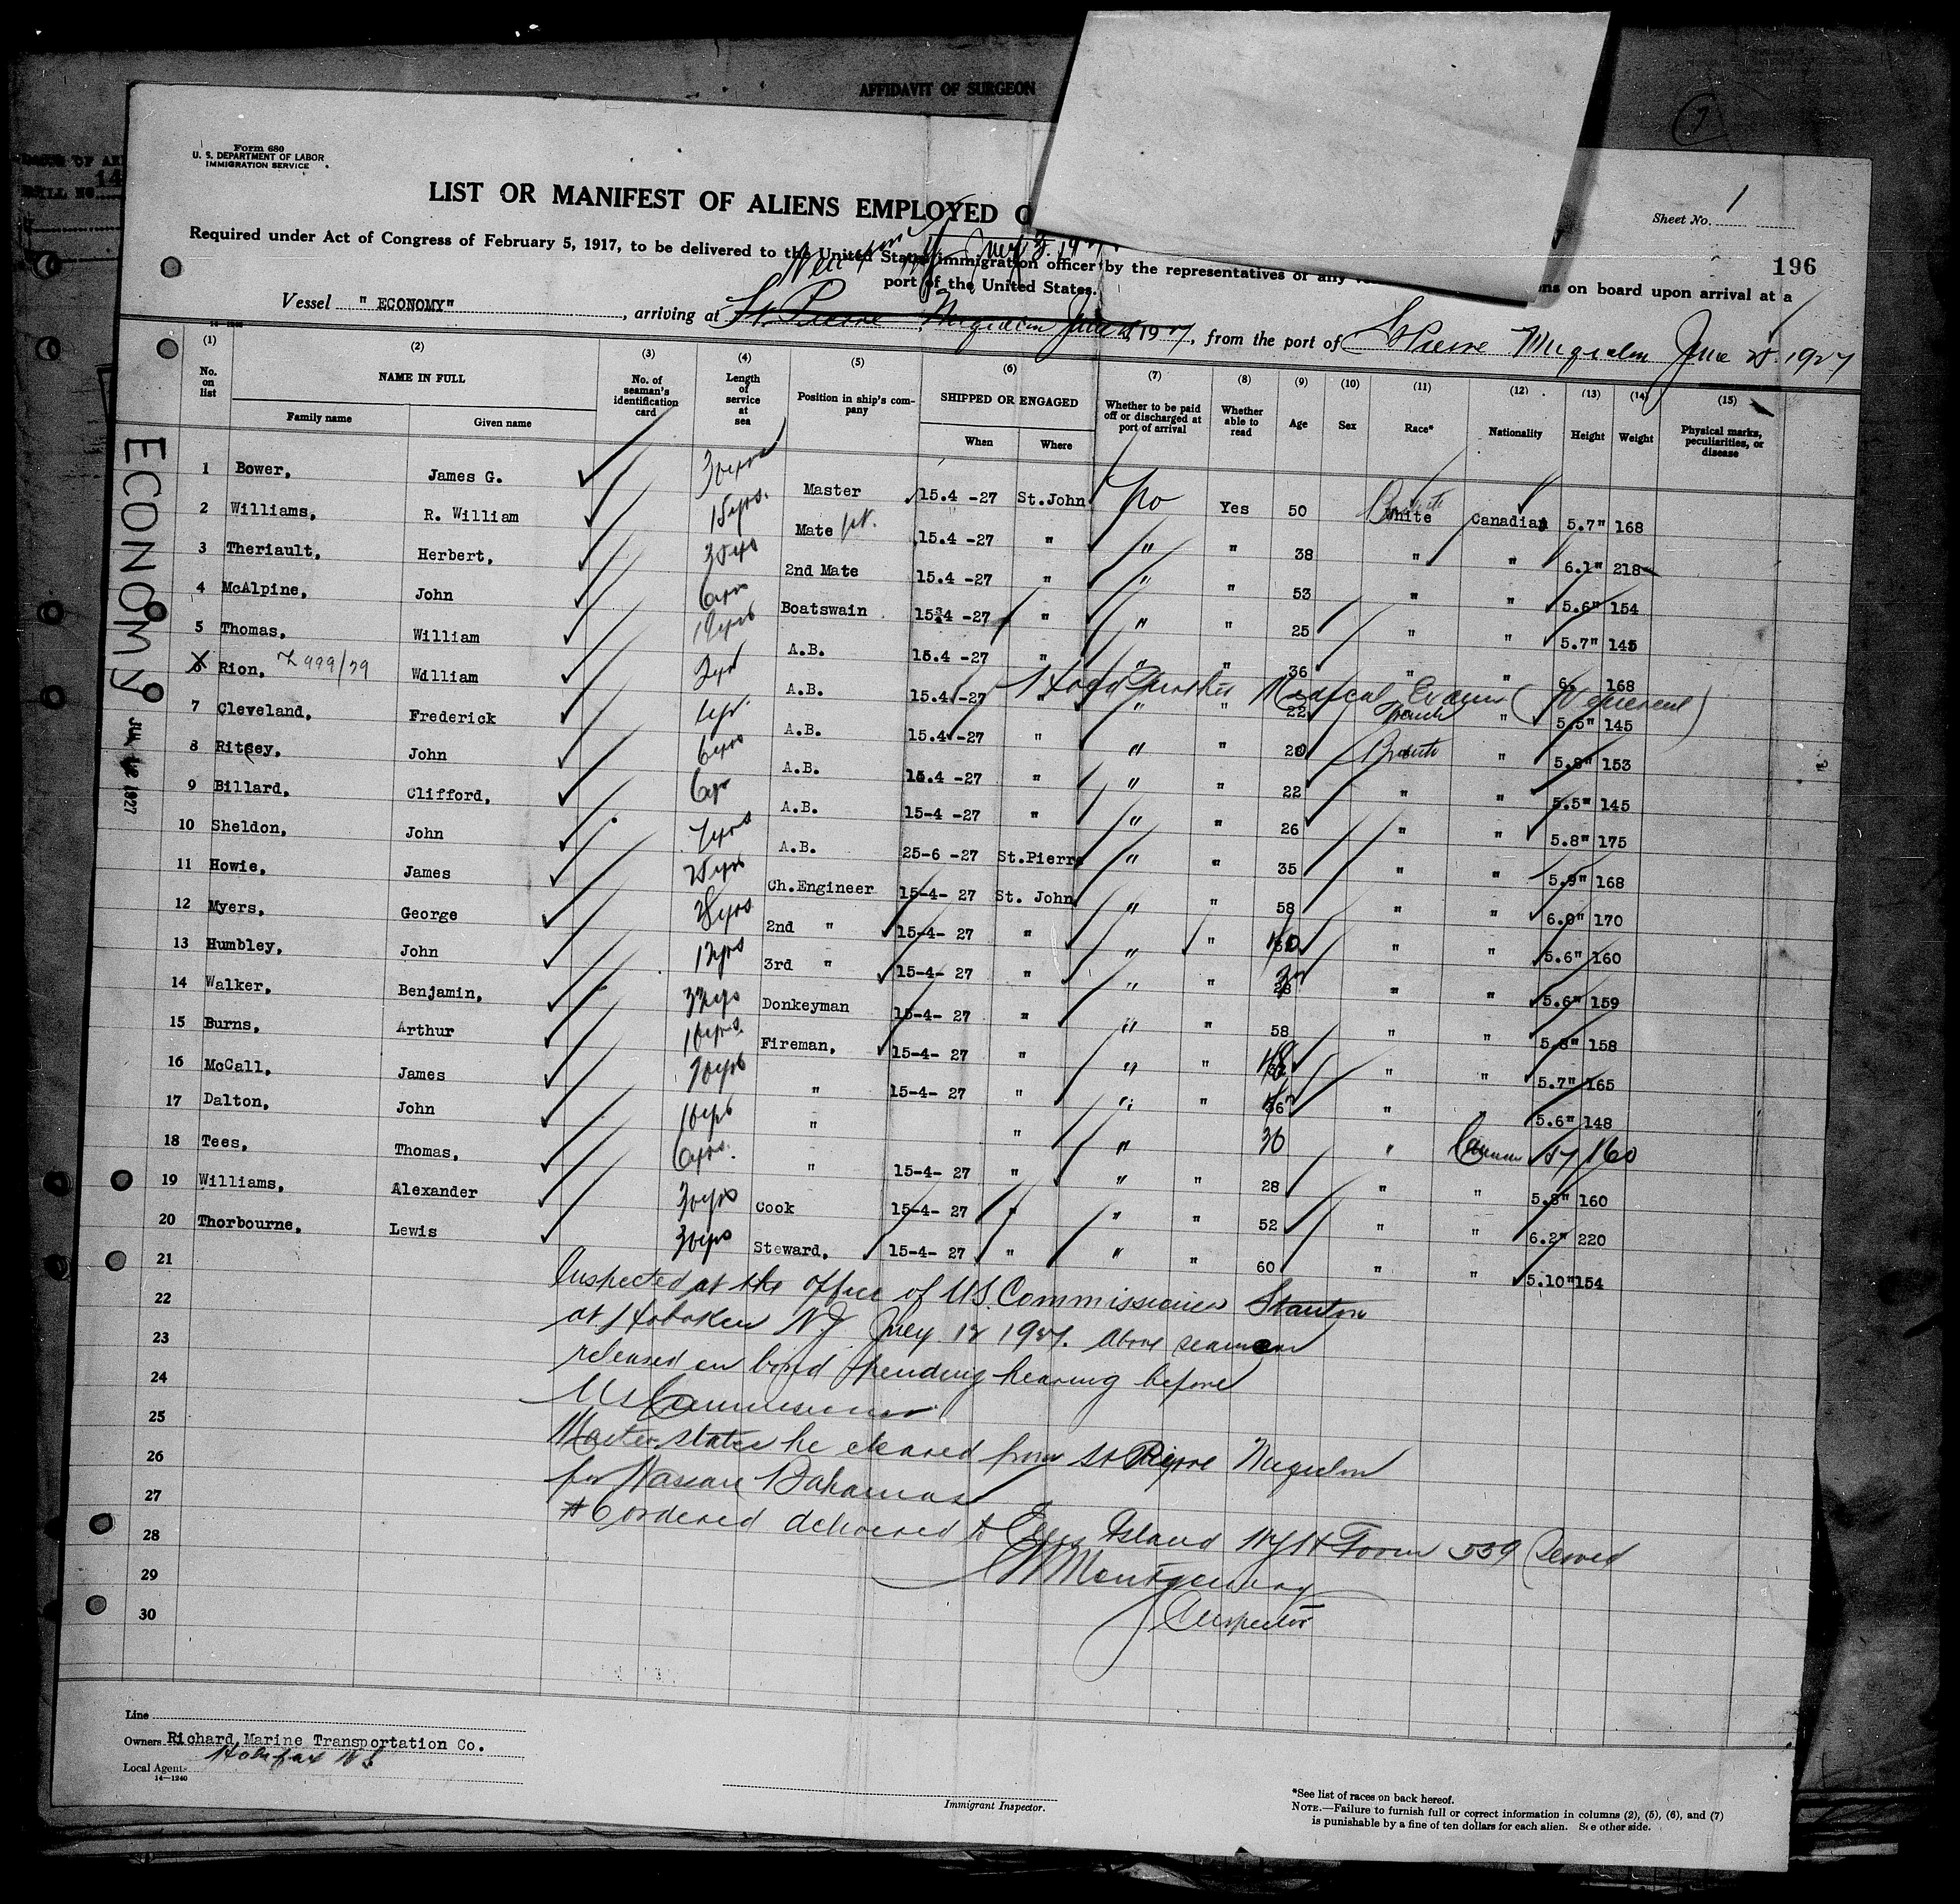 AFFIDAVIT OF SURGEON
Form 680
U. S. DEPARTMENT OF LABOR
IMMIGRATION SERVICE
Sheet No. 1
LIST OR MANIFEST OF ALIENS EMPLOYED
196
Required under Act of Congress of February 5, 1917, to be delivered to the United States immigration officer by the representatives of any on board upon arrival at a
port of the United States.
Vessel "ECONOMY", arriving at St. Pierre Miquelon June 1927, from the port of St Pierre Miquelon June 28. 1927
(1) (2) (3) (4) (5) (6) (7) (8) (9) (10) (11) (12) (13) (14) (15)
No. on list NAME IN FULL No. of seaman's identification card Length of service at sea Position in ship's company SHIPPED OR ENGAGED Whether to be paid off or discharged at port of arrival Whether able to read Age Sex Race* Nationality Height Weight Physical marks, peculiarities, or disease
Family name Given name When Where
1 Bower, James G. 30yrs Master 15.4 -27 St.John No Yes 50 White Canadian 5.7" 168
2 Williams, R. William 15yrs. Mate 1st. 15.4 -27 " " " 38 " " 6.1" 218
3 Theriault, Herbert, 2nd Mate 15.4 -27 " " " 53 " " 5.6" 154
4 McAlpine, John 6yrs Boatswain 15.4 -27 " " " 25 " " 5.7" 145
5 Thomas, William A.B. 15.4 -27 " " " 36 " " 6. 168
6 Rion, William 2yrs A.B. 15.4 -27 " " " 22 French " 5.5" 145
Medical Exam
7 Cleveland, Frederick A.B. 15.4 -27 " " " 20 British " 5.8" 153
8 Ritcey, John 6yrs A.B. 15.4 -27 " " " 22 " " 5.5" 145
9 Billard, Clifford, 6yr A.B. 15-4 -27 " " " 26 " " 5.8" 175
10 Sheldon, John 7yrs A.B. 25-6 -27 St.Pierre " " 35 " " 5.9" 168
11 Howie, James 25yrs Ch.Engineer 15-4- 27 St. John " " 58 " " 6.0" 170
12 Myers, George 28yrs 2nd " 15-4- 27 " " " " " 5.6" 160
13 Humbley, John 12yrs 3rd " 15-4- 27 " " " " " 5.6" 159
14 Walker, Benjamin, Donkeyman 15-4- 27 " " " 58 " " 5.8" 158
15 Burns, Arthur 10yrs. Fireman, 15-4- 27 " " " 48 " " 5.7" 165
16 McCall, James 20yrs " 15-4- 27 " " " " " 5.6" 148
17 Dalton, John 10yrs " " " 30 " 160
18 Tees, Thomas, 6yrs. " 15-4- 27 " " " 28 " " 5.8" 160
19 Williams, Alexander 30yrs Cook 15-4- 27 " " " 52 " " 6.2" 220
20 Thorbourne, Lewis 30yrs Steward, 15-4- 27 " " " 60 " " 5.10" 154
21
22
23
24
25
26
27
28
29
30
ECONOMY
1927
Inspected at the office of U.S. Commissioner Stanton
at Hoboken NJ July 12 1927. Above seamen
released on bond pending hearing before
US Commissioner
Master states he cleared from St Pierre Miquelon
for Nassau Bahamas
#6 ordered delivered to Ellis Island NYH Form 559 served
Montgomery
Inspector
Line
Owners Richard Marine Transportation Co.
Halifax NS
Local Agents
14—1240
Immigrant Inspector.
*See list of races on back hereof.
NOTE.—Failure to furnish full or correct information in columns (2), (5), (6), and (7)
is punishable by a fine of ten dollars for each alien. See other side.